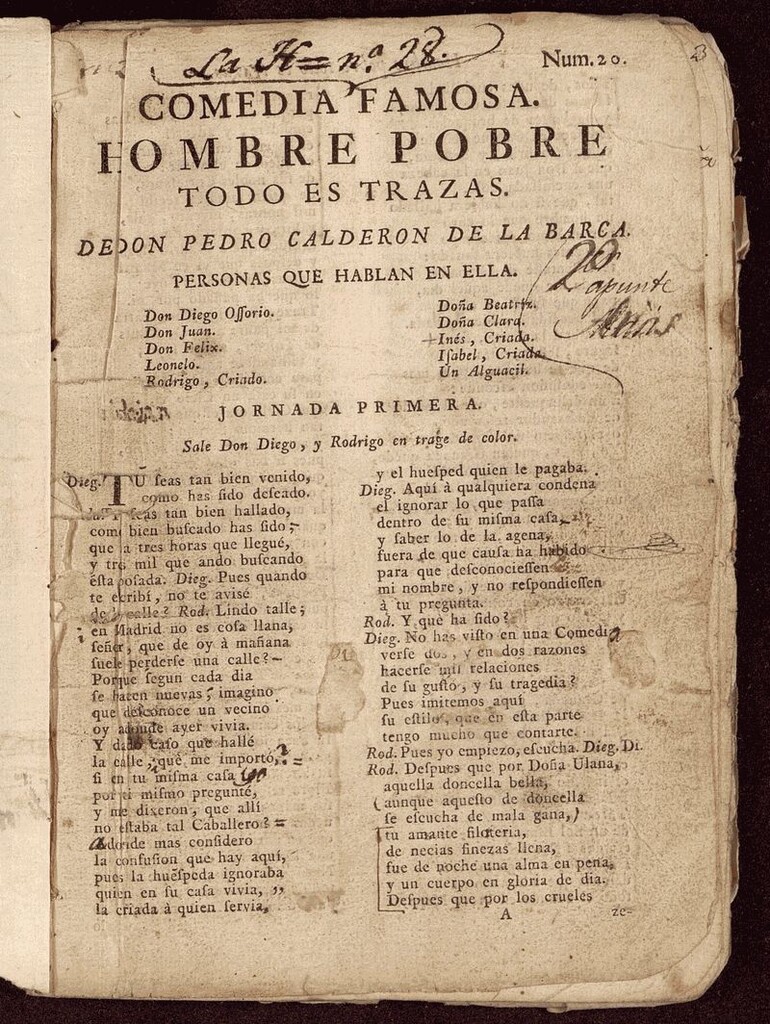 La H = nº 28.
Num. 20.
COMEDIA FAMOSA.
HOMBRE POBRE
TODO ES TRAZAS.
DE DON PEDRO CALDERON DE LA BARCA.
PERSONAS QUE HABLAN EN ELLA.
2º
apunte
Don Diego Oſſorio.
Don Juan.
Don Felix.
Leonelo.
Rodrigo, Criado.
Doña Beatriz.
Doña Clara.
Inés, Criada.
Iſabel, Criada.
Un Alguacil.
JORNADA PRIMERA.
Sale Don Diego, y Rodrigo en trage de color.
Dieg. TU ſeas tan bien venido,
como has ſido deſeado.
ſeas tan bien hallado,
como bien buſcado has ſido;
que a tres horas que llegué,
y tres mil que ando buſcando
eſta poſada. Dieg. Pues quando
te eſcribí, no te avisé
de la calle? Rod. Lindo talle;
en Madrid no es coſa llana,
ſeñor, que de oy á mañana
ſuele perderſe una calle?
Porque ſegun cada dia
ſe hacen nuevas, imagino
que deſconoce un vecino
oy adonde ayer vivia.
Y dado caſo que hallé
la calle, qué me importó,
ſi en tu miſma caſa yo
por ti miſmo pregunté,
y me dixeron, que allí
no eſtaba tal Caballero?
adonde mas conſidero
la confuſion que hay aquí,
pues la hueſpeda ignoraba
quien en ſu caſa vivia,
la criada à quien ſervia,
y el hueſped quien le pagaba.
Dieg. Aquí à qualquiera condena
el ignorar lo que paſſa
dentro de ſu miſma caſa,
y ſaber lo de la agena,
fuera de que cauſa ha habido
para que deſconocieſſen
mi nombre, y no reſpondieſſen
à tu pregunta.
Rod. Y què ha ſido?
Dieg. No has viſto en una Comedia
verſe dos, y en dos razones
hacerſe mil relaciones
de ſu guſto, y ſu tragedia?
Pues imitemos aquí
ſu eſtilo, que en eſta parte
tengo mucho que contarte.
Rod. Pues yo empiezo, eſcucha. Dieg. Di.
Rod. Deſpues que por Doña Ulana,
aquella doncella bella,
(aunque aqueſto de doncella
ſe eſcucha de mala gana,)
tu amante filoteria,
de necias finezas llena,
fue de noche una alma en pena,
y un cuerpo en gloria de dia.
Deſpues que por los crueles
A
ze-